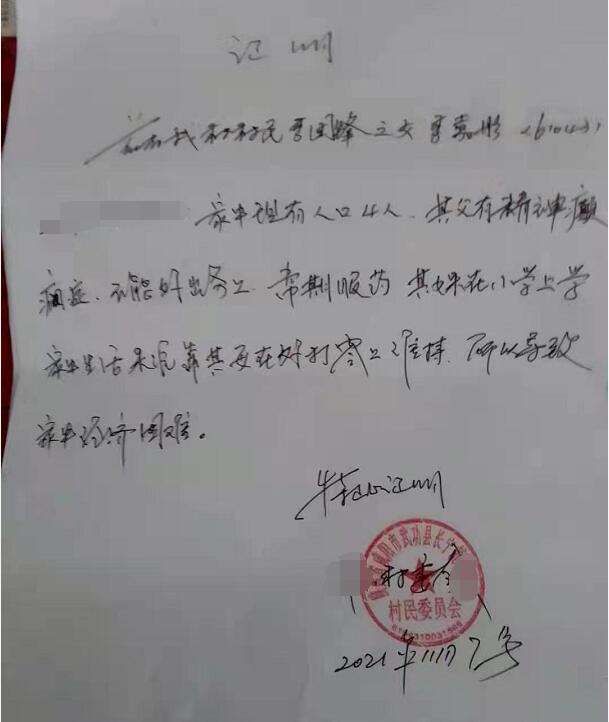 证明
兹有我村村民李国峰之女李嘉彤(6104
家中现有人口4人.其父有精神癫
痫症.不能外出务工.常期服药 其妹在小学上学
家中生活来源靠其母在外打零工维持.所以导致
家中经济困难。
特此证明
咸阳市武功县长宁
村委会
村民委员会
2021年11月7号